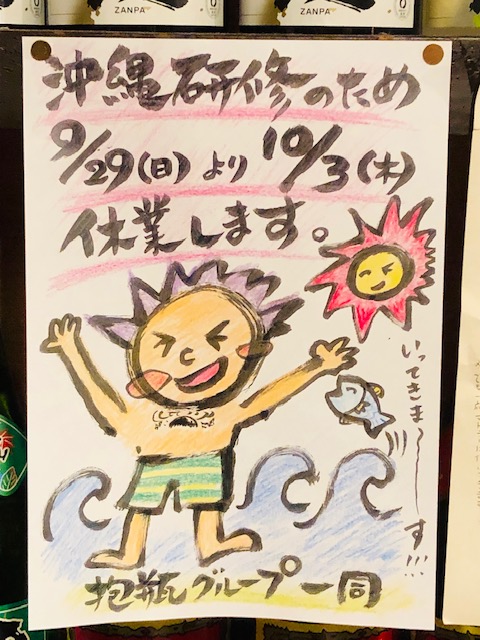 ZANPA
ZANPA
沖縄研修のため
9/29(日)より10/3(木)
休業します。
いってきま〜〜す!!!
抱瓶グループ一同